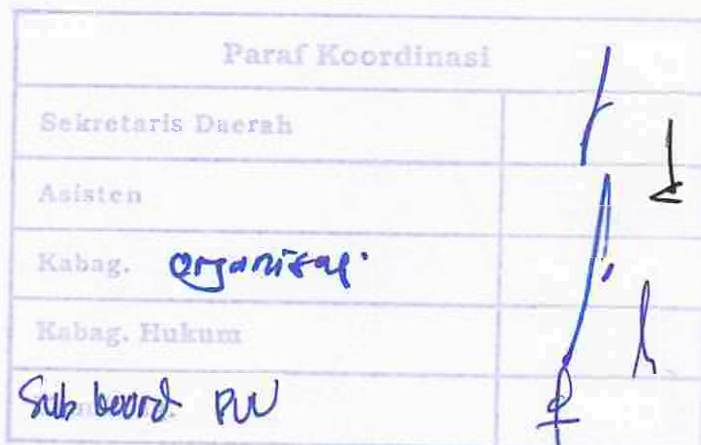 Paraf Koordinasi
Sekretaris Daerah
Asisten
Kabag. Organisasi.
Kabag. Hukum
Sub koord PUU